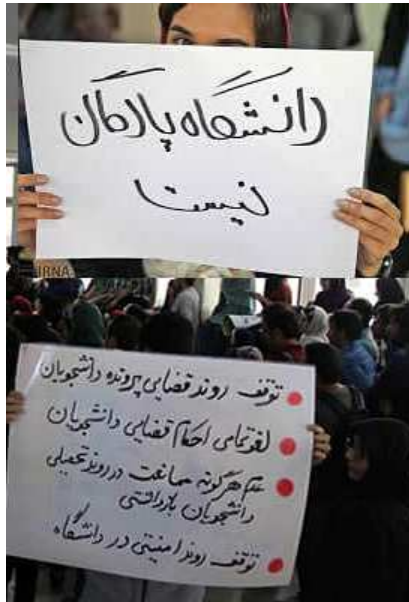 دانشگاه پادگان
نیست
IRNA
توقف روند قضایی پرونده دانشجویان
لغو تمامی احکام قضایی دانشجویان
عدم هرگونه ممانعت در روند تحصیلی
دانشجویان بازداشتی
توقف روند امنیتی در دانشگاه